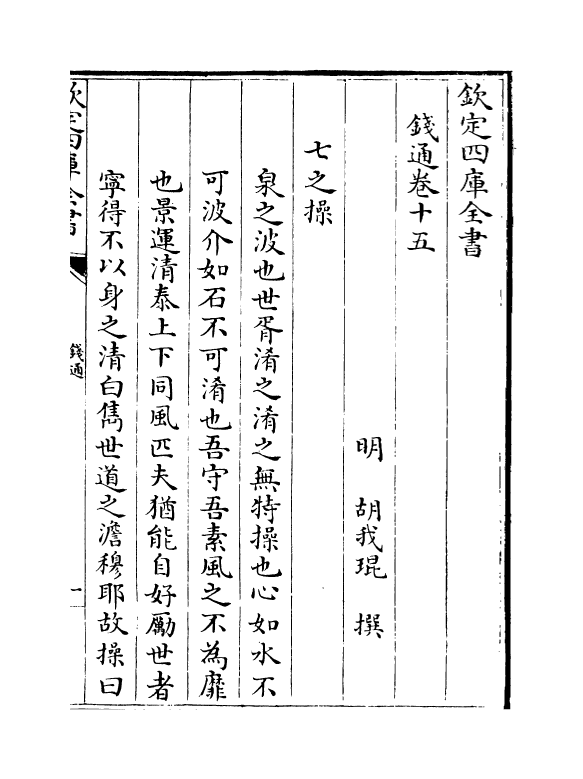 欽定四庫全書
錢通卷十五
明 胡我琨 撰
七之操
泉之波也世胥淆之淆之無特操也心如水不
可波介如石不可淆也吾守吾素風之不為靡
也景運清泰上下同風匹夫猶能自好勵世者
寧得不以身之清白雋世道之澹穆耶故操曰
欽定四庫全書
錢通
一